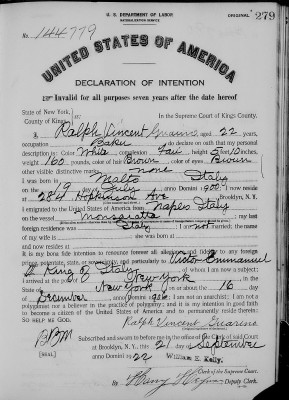 U. S. DEPARTMENT OF LABOR
NATURALIZATION SERVICE
ORIGINAL 279
No. 144779
UNITED STATES OF AMERICA
DECLARATION OF INTENTION
Invalid for all purposes seven years after the date hereof
State of New York,
County of Kings, ss: In the Supreme Court of Kings County.
I, Ralph Vincent Guarino, aged 22 years,
occupation Baker, do declare on oath that my personal
description is: Color White, complexion Fair, height 5 feet inches,
weight 160 pounds, color of hair Brown, color of eyes Brown
other visible distinctive marks none
I was born in Italy
on the 19 day of July, anno Domini 1900; I now reside
at 284 Hopkinson Ave, Brooklyn, N. Y.
I emigrated to the United States of America from Naples Italy
on the vessel; my last
foreign residence was Italy; I am not married; the name
of my wife is; she was born at
and now resides at
It is my bona fide intention to renounce forever all allegiance and fidelity to any foreign
prince, potentate, state, or sovereignty, and particularly to Victor Emmanuel
III King of Italy, of whom I am now a subject;
I arrived at the port of New York, in the
State of New York, on or about the 16 day
of December, anno Domini; I am not an anarchist; I am not a
polygamist nor a believer in the practice of polygamy; and it is my intention in good faith
to become a citizen of the United States of America and to permanently reside therein:
SO HELP ME GOD.
Ralph Vincent Guarino
Subscribed and sworn to before me in the office of the Clerk of said Court
at Brooklyn, N. Y., this 21 day of September
anno Domini 1922
[SEAL]
William E. Kelly,
Clerk of the Supreme Court.
By Deputy Clerk.